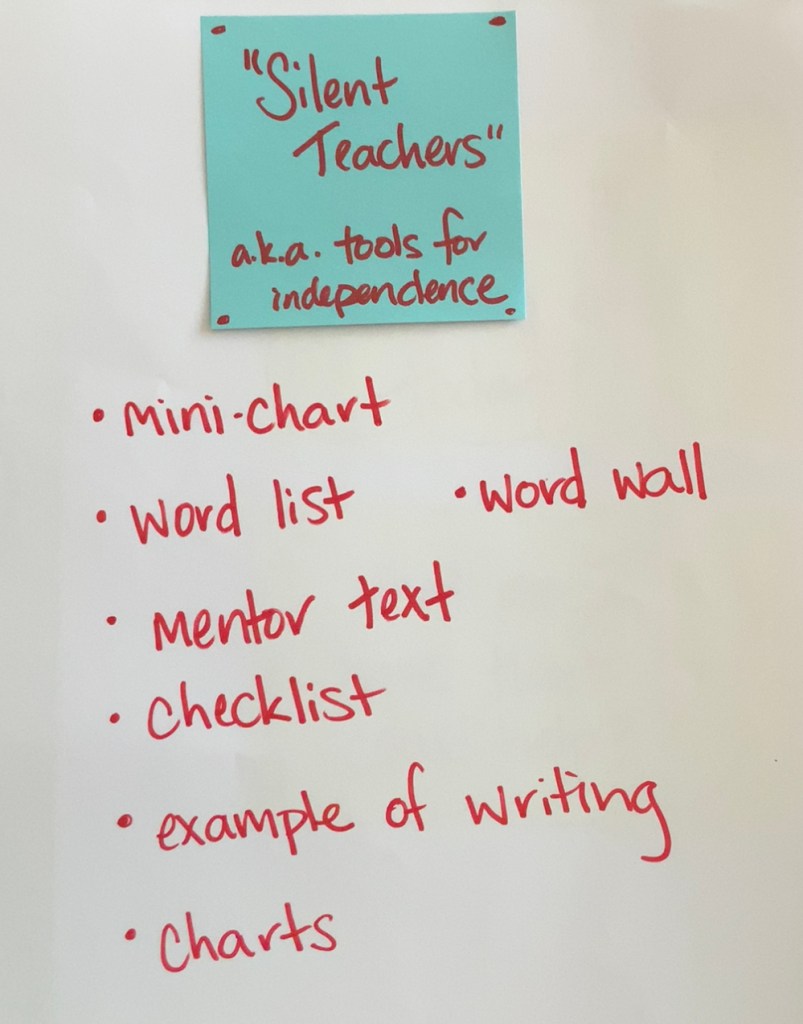 "Silent
Teachers"
a.k.a. tools for
independence
• mini-chart
• word list • word wall
• mentor text
• checklist
• example of writing
• charts